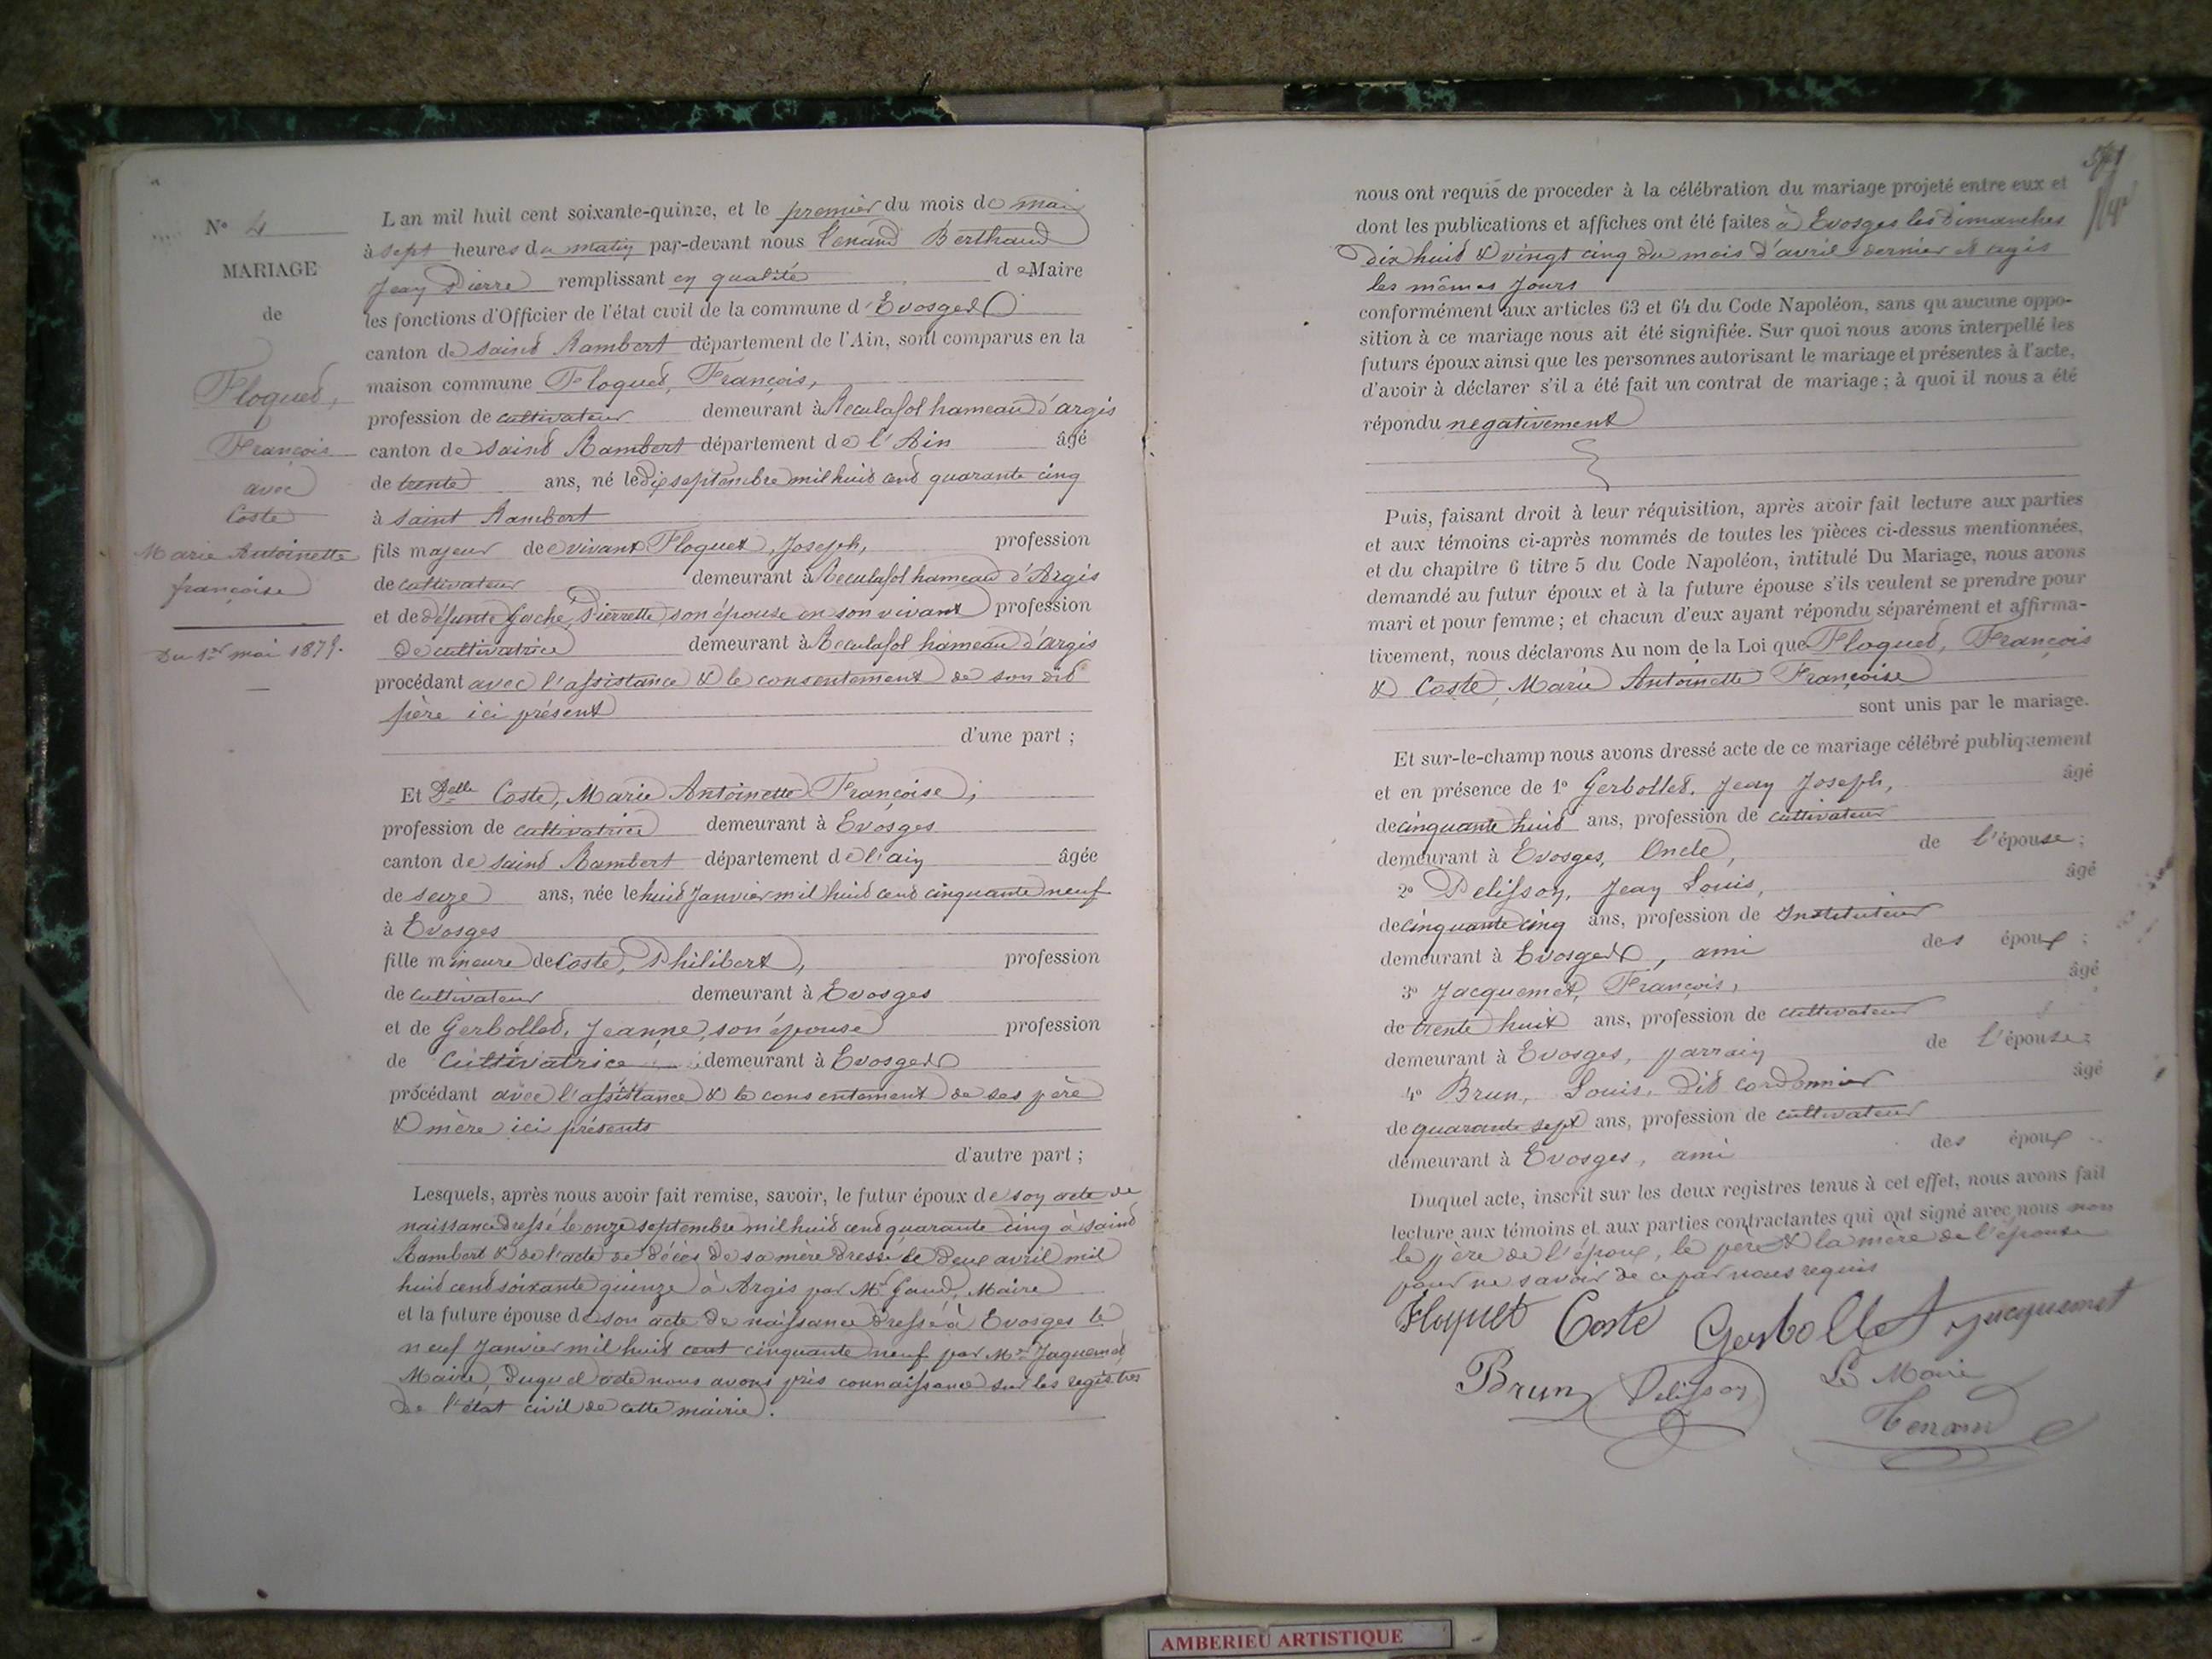 N° 4
MARIAGE
de
Floquet,
François
avec
Coste
Marie Antoinette
françoise
Du 1er mai 1875.
L'an mil huit cent soixante-quinze, et le premier du mois de mai
à sept heures du matin par-devant nous Tenand Berthaud
Jean Pierre remplissant en qualité de Maire
les fonctions d'Officier de l'état civil de la commune d'Evosges
canton de saint Rambert département de l'Ain, sont comparus en la
maison commune Floquet, François,
profession de cultivateur demeurant à Reculafol hameau d'argis
canton de Saint Rambert département de l'Ain âgé
de trente ans, né le Dix septembre mil huit cent quarante cinq
à Saint Rambert
fils majeur de vivant Floquet, Joseph, profession
de cultivateur demeurant à Reculafol hameau d'Argis
et de défunte Gache, Pierrette, son épouse en son vivant profession
De cultivatrice demeurant à Reculafol hameau d'argis
procédant avec l'assistance & le consentement de son dit
père ici présent
d'une part ;
Et Delle Coste, Marie Antoinette Françoise,
profession de cultivatrice demeurant à Evosges
canton de saint Rambert département de l'ain âgée
de seize ans, née le huit Janvier mil huit cent cinquante neuf
à Evosges
fille mineure de Coste, Philibert, profession
de cultivateur demeurant à Evosges
et de Gerbollet, Jeanne, son épouse profession
de Cultivatrice demeurant à Evosges
procédant avec l'assistance & le consentement de ses père
& mère ici présents
d'autre part ;
Lesquels, après nous avoir fait remise, savoir, le futur époux de son acte de
naissance dressé le onze septembre mil huit cent quarante cinq à saint
Rambert & de l'acte de décès de sa mère dressé le Deux avril mil
huit cent soixante quinze à Argis par Mr Gaud, Maire
et la future épouse de son acte de naissance dressé à Evosges le
neuf Janvier mil huit cent cinquante neuf par Mr Jaquemet
Maire, duquel acte nous avons pris connaissance sur les registres
de l'état civil de cette mairie.
nous ont requis de proceder à la célébration du mariage projeté entre eux et
dont les publications et affiches ont été faites à Evosges les Dimanches
Dix huit & vingt cinq du mois d'avril dernier et argis
les mêmes Jours
conformément aux articles 63 et 64 du Code Napoléon, sans qu'aucune oppo-
sition à ce mariage nous ait été signifiée. Sur quoi nous avons interpellé les
futurs époux ainsi que les personnes autorisant le mariage et présentes à l'acte,
d'avoir à déclarer s'il a été fait un contrat de mariage ; à quoi il nous a été
répondu negativement
Puis, faisant droit à leur réquisition, après avoir fait lecture aux parties
et aux témoins ci-après nommés de toutes les pièces ci-dessus mentionnées,
et du chapitre 6 titre 5 du Code Napoléon, intitulé Du Mariage, nous avons
demandé au futur époux et à la future épouse s'ils veulent se prendre pour
mari et pour femme ; et chacun d'eux ayant répondu séparément et affirma-
tivement, nous déclarons Au nom de la Loi que Floquet, François
& Coste, Marie Antoinette Françoise
sont unis par le mariage.
Et sur-le-champ nous avons dressé acte de ce mariage célébré publiquement
et en présence de 1° Gerbollet, Jean Joseph, âgé
de cinquante huit ans, profession de cultivateur
demeurant à Evosges, Oncle, de l'épouse ;
2° Pelisson, Jean Louis, âgé
de cinquante cinq ans, profession de Instituteur
demeurant à Evosges, ami des époux ;
3° Jacquemet, François, âgé
de trente huit ans, profession de cultivateur
demeurant à Evosges, parrain de l'épouse ;
4° Brun, Louis, dit cordonnier âgé
de quarante sept ans, profession de cultivateur
demeurant à Evosges, ami des époux
Duquel acte, inscrit sur les deux registres tenus à cet effet, nous avons fait
lecture aux témoins et aux parties contractantes qui ont signé avec nous non
le père de l'époux, le père & la mère de l'épouse
pour ne savoir de ce par nous requis
Floquet Coste Gerbollet Jacquemet
Brun Pelisson Le Maire
Tenand
AMBERIEU ARTISTIQUE